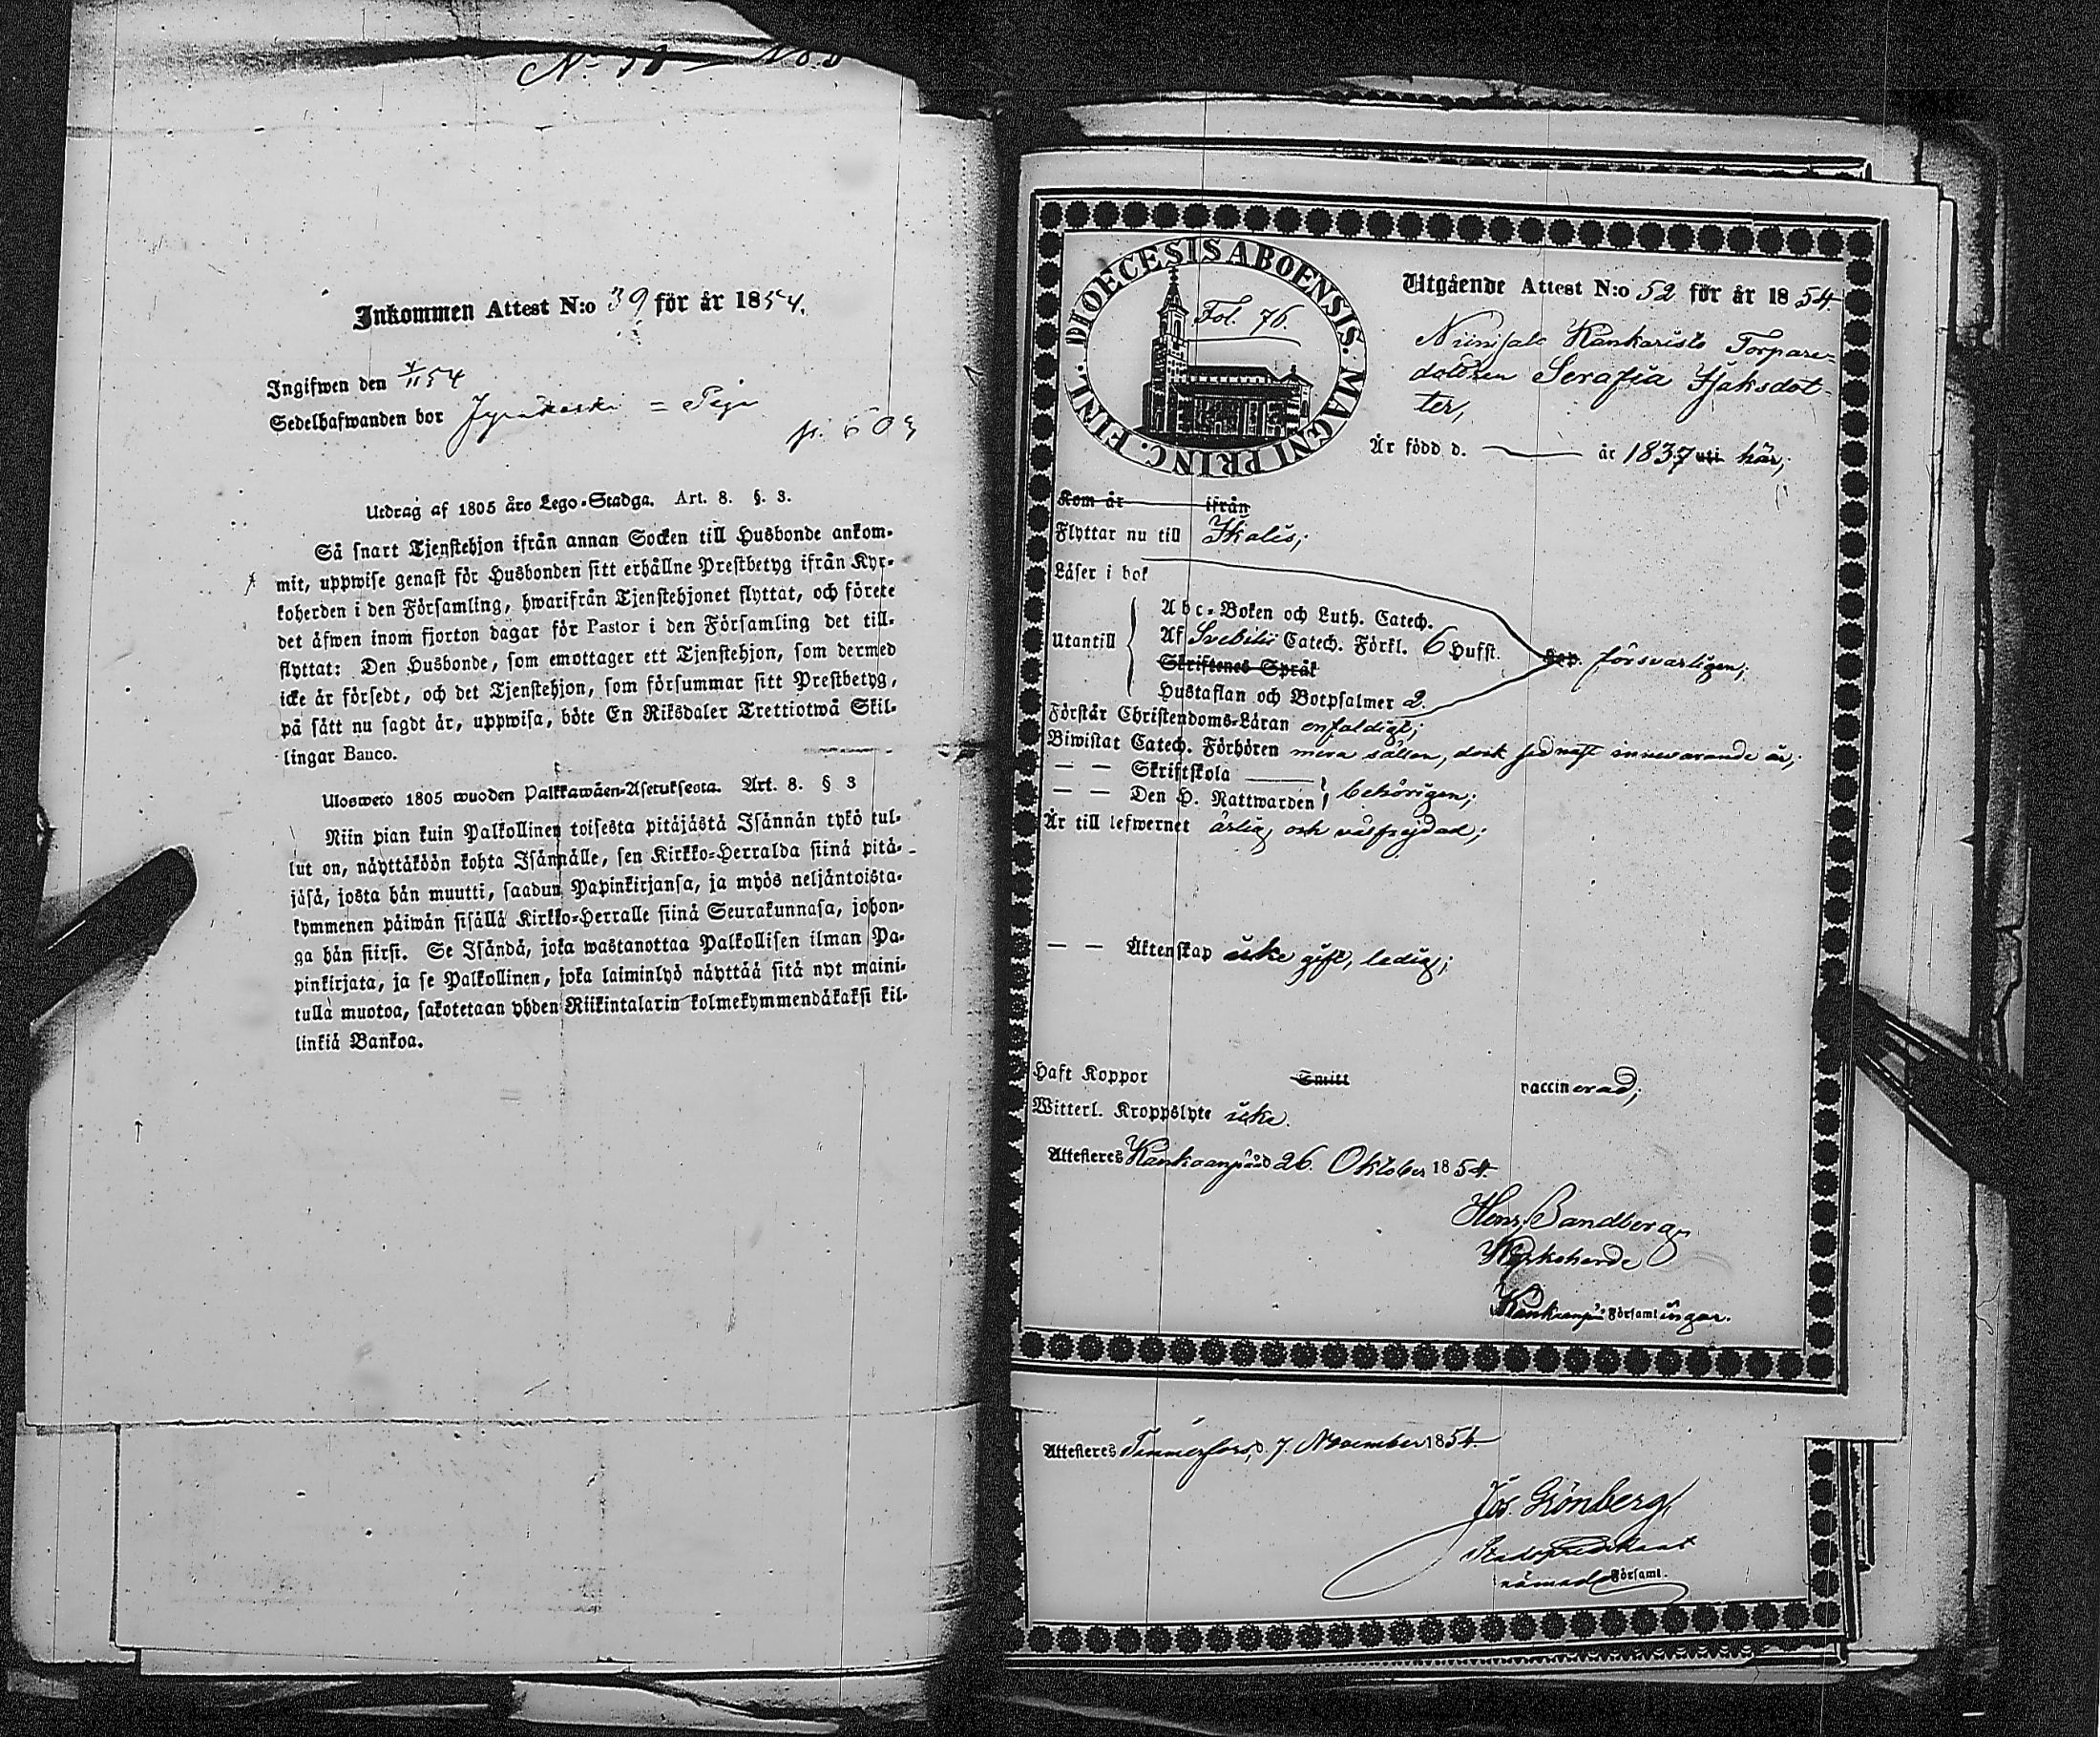 Inkommen Attest N:o 39 för år 1854.
Ingifwen den 54
Sedelhafwanden bor
Utdrag af 1805 års Lego-Stadga. Art. 8. §. 3.
Så snart Tjenstehjon ifrån annan Socken till Husbonde ankom-
mit, uppwise genast för Husbonden sitt erhållne Prestbetyg ifrån Kyr-
koherden i den Församling, hwarifrån Tjenstehjonet flyttat, och förete
det äfwen inom fjorton dagar för Pastor i den Församling det till-
flyttat: Den Husbonde, som emottager ett Tjenstehjon, som dermed
icke är försedt, och det Tjenstehjon, som försummar sitt Prestbetyg,
på sätt nu sagdt är, uppwisa, böte En Riksdaler Trettiotwå Skil-
lingar Banco.
Ulosweto 1805 wuoden Palkkawäen-Asetuksesta. Art. 8. § 3
Niin pian kuin Palkollinen toisesta pitäjästä Isännän tykö tul-
lut on, näyttäköön kohta Isännälle, sen Kirkko-Herralda siinä pitä-
jäsä, josta hän muutti, saadun Papinkirjansa, ja myös neljäntoista-
kymmenen päiwän sisällä Kirkko-Herralle siinä Seurakunnasa, johon-
ga hän siirsi. Se Isändä, joka wastanottaa Palkollisen ilman Pa-
pinkirjata, ja se Palkollinen, joka laiminlyö näyttää sitä nyt maini-
tulla muotoa, sakotetaan yhden Riikintalarin kolmekymmendäkaksi kil-
linkiä Bankoa.
DIOECESIS ABOENSIS. MAGNI PRINC. FINL.
Fol. 76.
Utgående Attest N:o 52 för år 1854.
Niinisalo Kankaristo Torpare-
dottren Serafia Isaksdot-
ter,
Är född d. — år 1837 uti här;
Kom år ifrån
Flyttar nu till Ikalis;
Läser i bok
Utantill
Abc-Boken och Luth. Catech.
Af Svebilii Catech. Förkl. 6 Hufst.
Skriftenes Språk
Hustaflan och Botpsalmer 2.
försvarligen;
Förstår Christendoms-Läran enfaldigt;
Biwistat Catech. Förhören mera sällan, dock sednast innevarande år;
— — Skriftskola
— — Den H. Nattwarden behörigen;
Är till lefwernet ärlig och välfrejdad;
— — Äktenskap icke gift, ledig;
Haft Koppor Smitt vaccinerad;
Witterl. Kroppslyte icke.
Attesteres Kankaanpää d 26. Oktober 1854.
Henr. Bandberg
Kyrkoherde
Kankaanpää Församlingar.
Attesteres Tammerfors, d. 7. November 1854.
Jos. Grönberg
Stadspredikant
Församl.